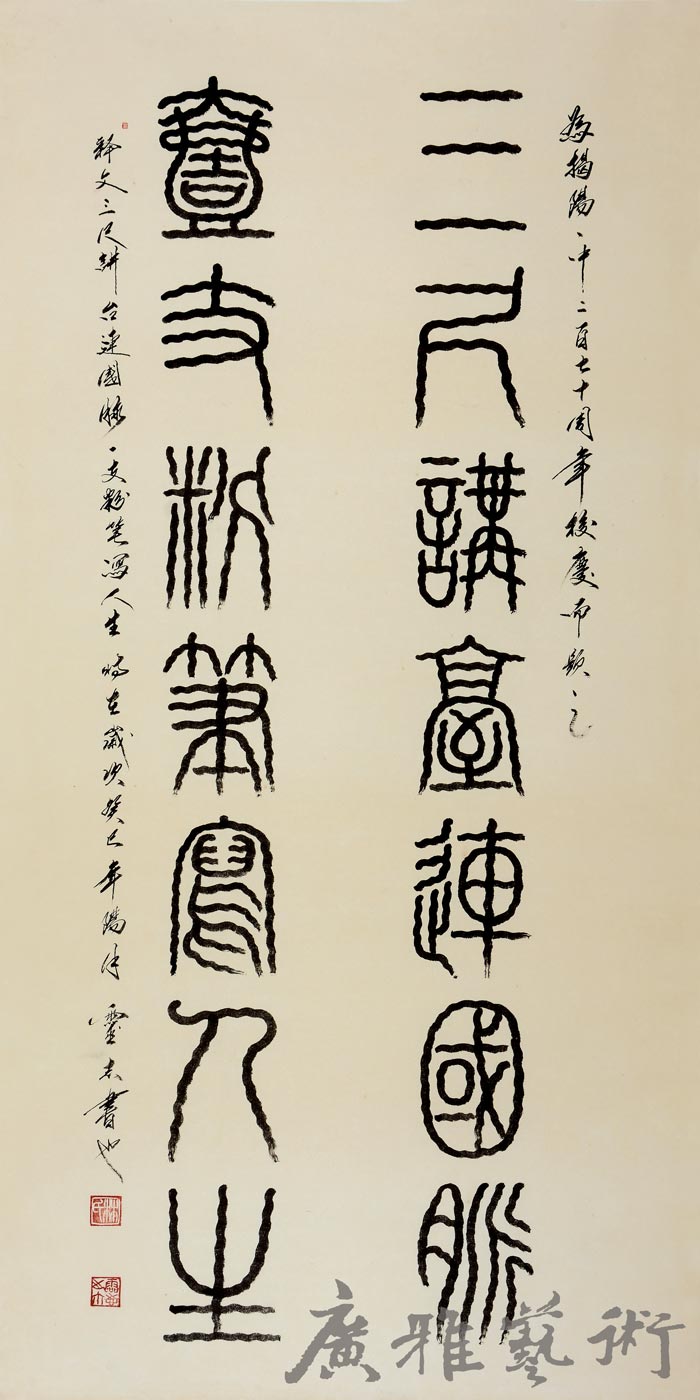 為揭陽一中二百七十周年校慶而題之
三尺講臺連國脈
壹支粉筆寫人生
釋文三尺講台連國脉一支粉筆寫人生時在歲次癸巳年陽月靈志書也
廣雅藝術